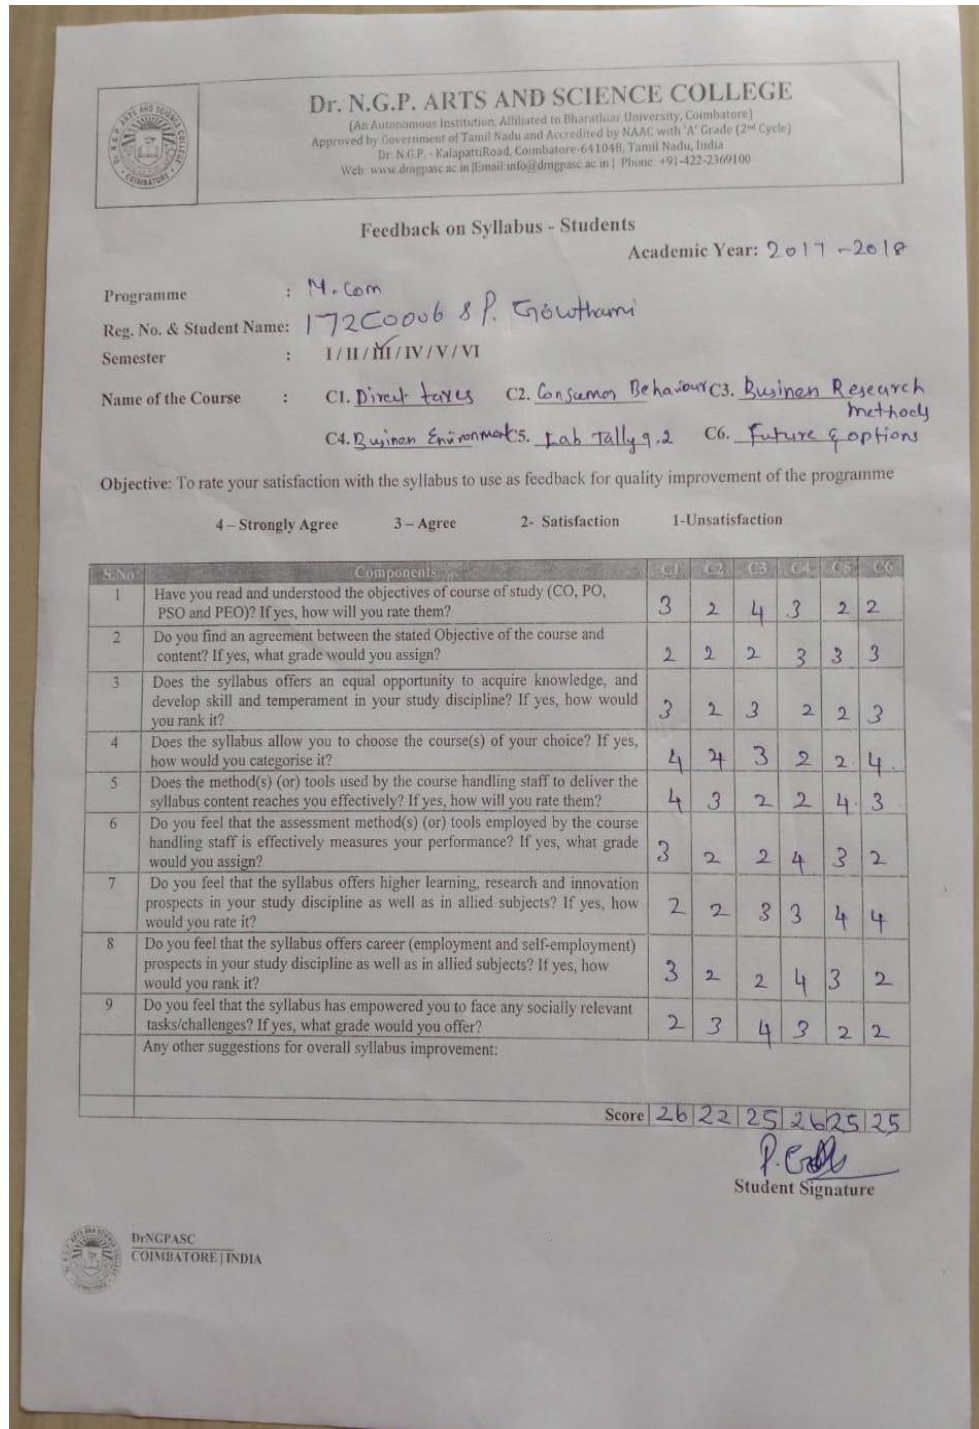 Dr. N.G.P. ARTS AND SCIENCE COLLEGE
(An Autonomous Institution, Affiliated to Bharathiar University, Coimbatore)
Approved by Government of Tamil Nadu and Accredited by NAAC with 'A' Grade (2nd Cycle)
Dr. N.G.P. - KalapattiRoad, Coimbatore-641048, Tamil Nadu, India
Web: www.drngpasc.ac.in |Email:info@drngpasc.ac.in | Phone: +91-422-2369100
Feedback on Syllabus - Students
Academic Year: 2017-2018
Programme : M.Com
Reg. No. & Student Name: 172C0006 & P. Gowthami
Semester : I / II / III / IV / V / VI
Name of the Course : C1. Direct taxes C2. Consumer Behaviour C3. Business Research
methods
C4. Business Environment C5. Lab Tally 9.2 C6. Future & options
Objective: To rate your satisfaction with the syllabus to use as feedback for quality improvement of the programme
4 – Strongly Agree 3 – Agree 2- Satisfaction 1-Unsatisfaction
S.No Components C1 C2 C3 C4 C5 C6
1 Have you read and understood the objectives of course of study (CO, PO,
PSO and PEO)? If yes, how will you rate them? 3 2 4 3 2 2
2 Do you find an agreement between the stated Objective of the course and
content? If yes, what grade would you assign? 2 2 2 3 3 3
3 Does the syllabus offers an equal opportunity to acquire knowledge, and
develop skill and temperament in your study discipline? If yes, how would
you rank it? 3 2 3 2 2 3
4 Does the syllabus allow you to choose the course(s) of your choice? If yes,
how would you categorise it? 4 4 3 2 2. 4.
5 Does the method(s) (or) tools used by the course handling staff to deliver the
syllabus content reaches you effectively? If yes, how will you rate them? 4 3 2 2 4. 3
6 Do you feel that the assessment method(s) (or) tools employed by the course
handling staff is effectively measures your performance? If yes, what grade
would you assign? 3 2 2 4 3 2
7 Do you feel that the syllabus offers higher learning, research and innovation
prospects in your study discipline as well as in allied subjects? If yes, how
would you rate it? 2 2 3 3 4 4
8 Do you feel that the syllabus offers career (employment and self-employment)
prospects in your study discipline as well as in allied subjects? If yes, how
would you rank it? 3 2 2 4 3 2
9 Do you feel that the syllabus has empowered you to face any socially relevant
tasks/challenges? If yes, what grade would you offer? 2 3 4 3 2 2
Any other suggestions for overall syllabus improvement:
Score 26 22 25 26 25 25
Student Signature
DrNGPASC
COIMBATORE | INDIA